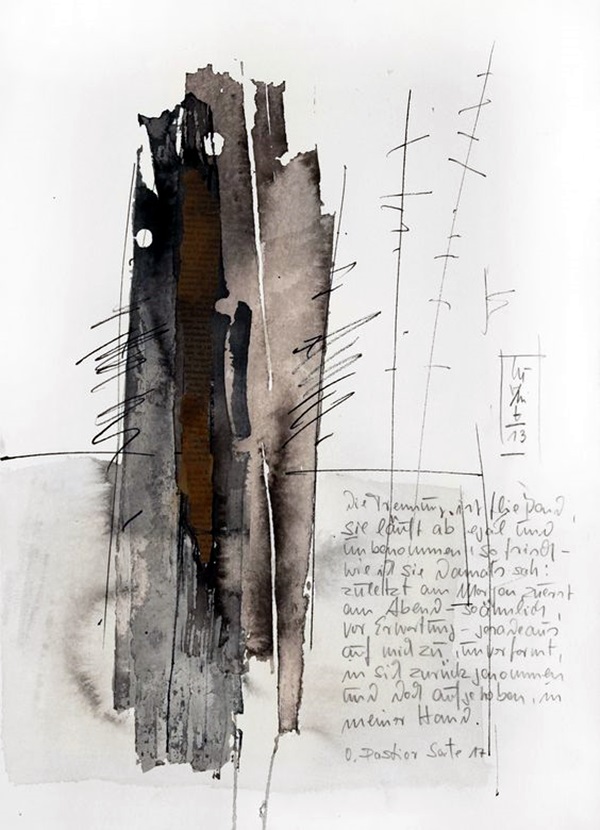 6
13
die Trennung ist fließend,
sie läuft ab egal und
unbenommen, so frisch –
wie ich sie damals sah:
zuletzt am Morgen zuerst
am Abend – so ähnlich,
vor Erwartung – geradeaus
auf mich zu, unverformt,
in sich zurückgenommen
und doch aufgehoben, in
meiner Hand.
O. Pastior Seite 17